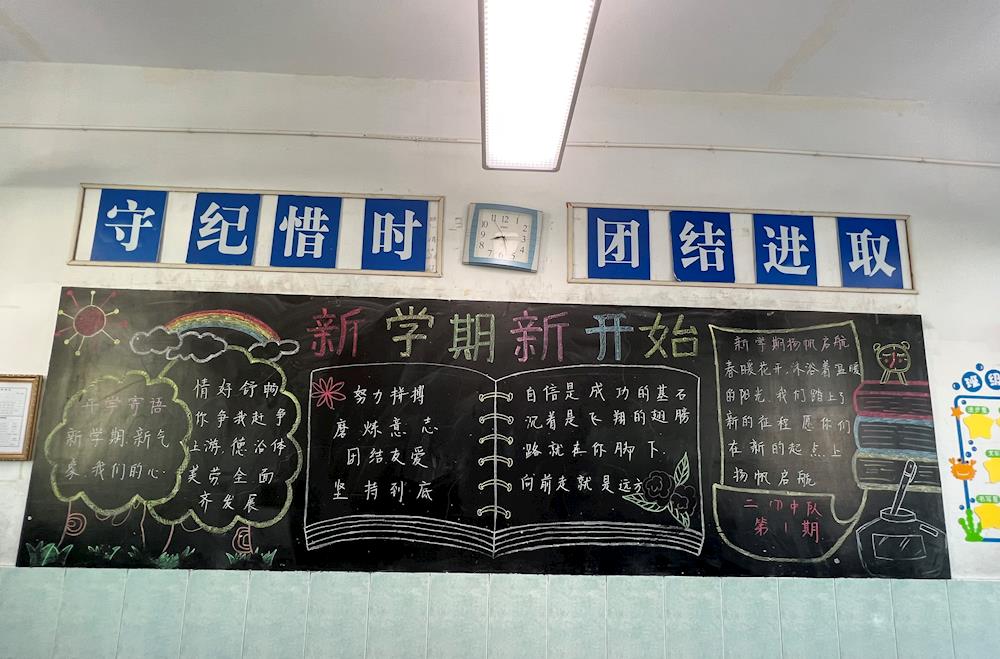 守纪惜时
团结进取
新学期新开始
开学寄语
新学期,新气
象,我们的心
情好舒畅
你争我赶争
上游,德治体
美劳全面
齐发展
努力拼搏
磨炼意志
团结友爱
坚持到底
自信是成功的基石
沉着是飞翔的翅膀
路就在你脚下.
向前走就是远方
新学期扬帆启航
春暖花开,沐浴着温暖
的阳光,我们踏上了
新的征程愿你们
在新的起点上
扬帆启航
二(7)中队
第1期
12
11
1
10
2
9
3
8
4
7
6
5
班级